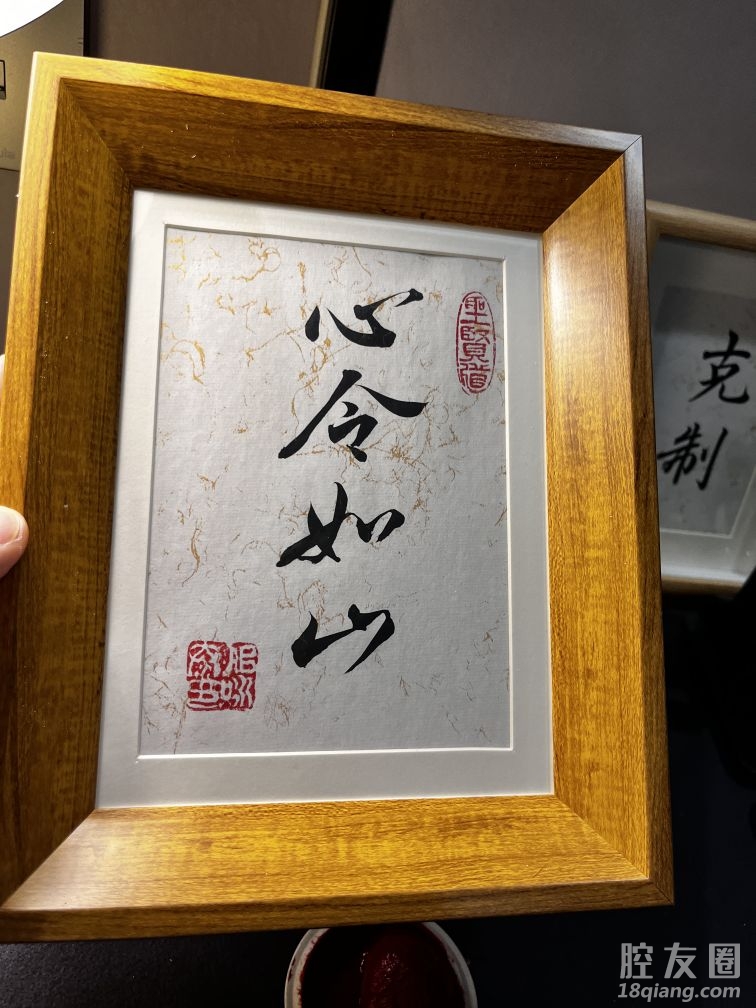 心令如山
聖賢道
克制
腔友圈
18qiang.com